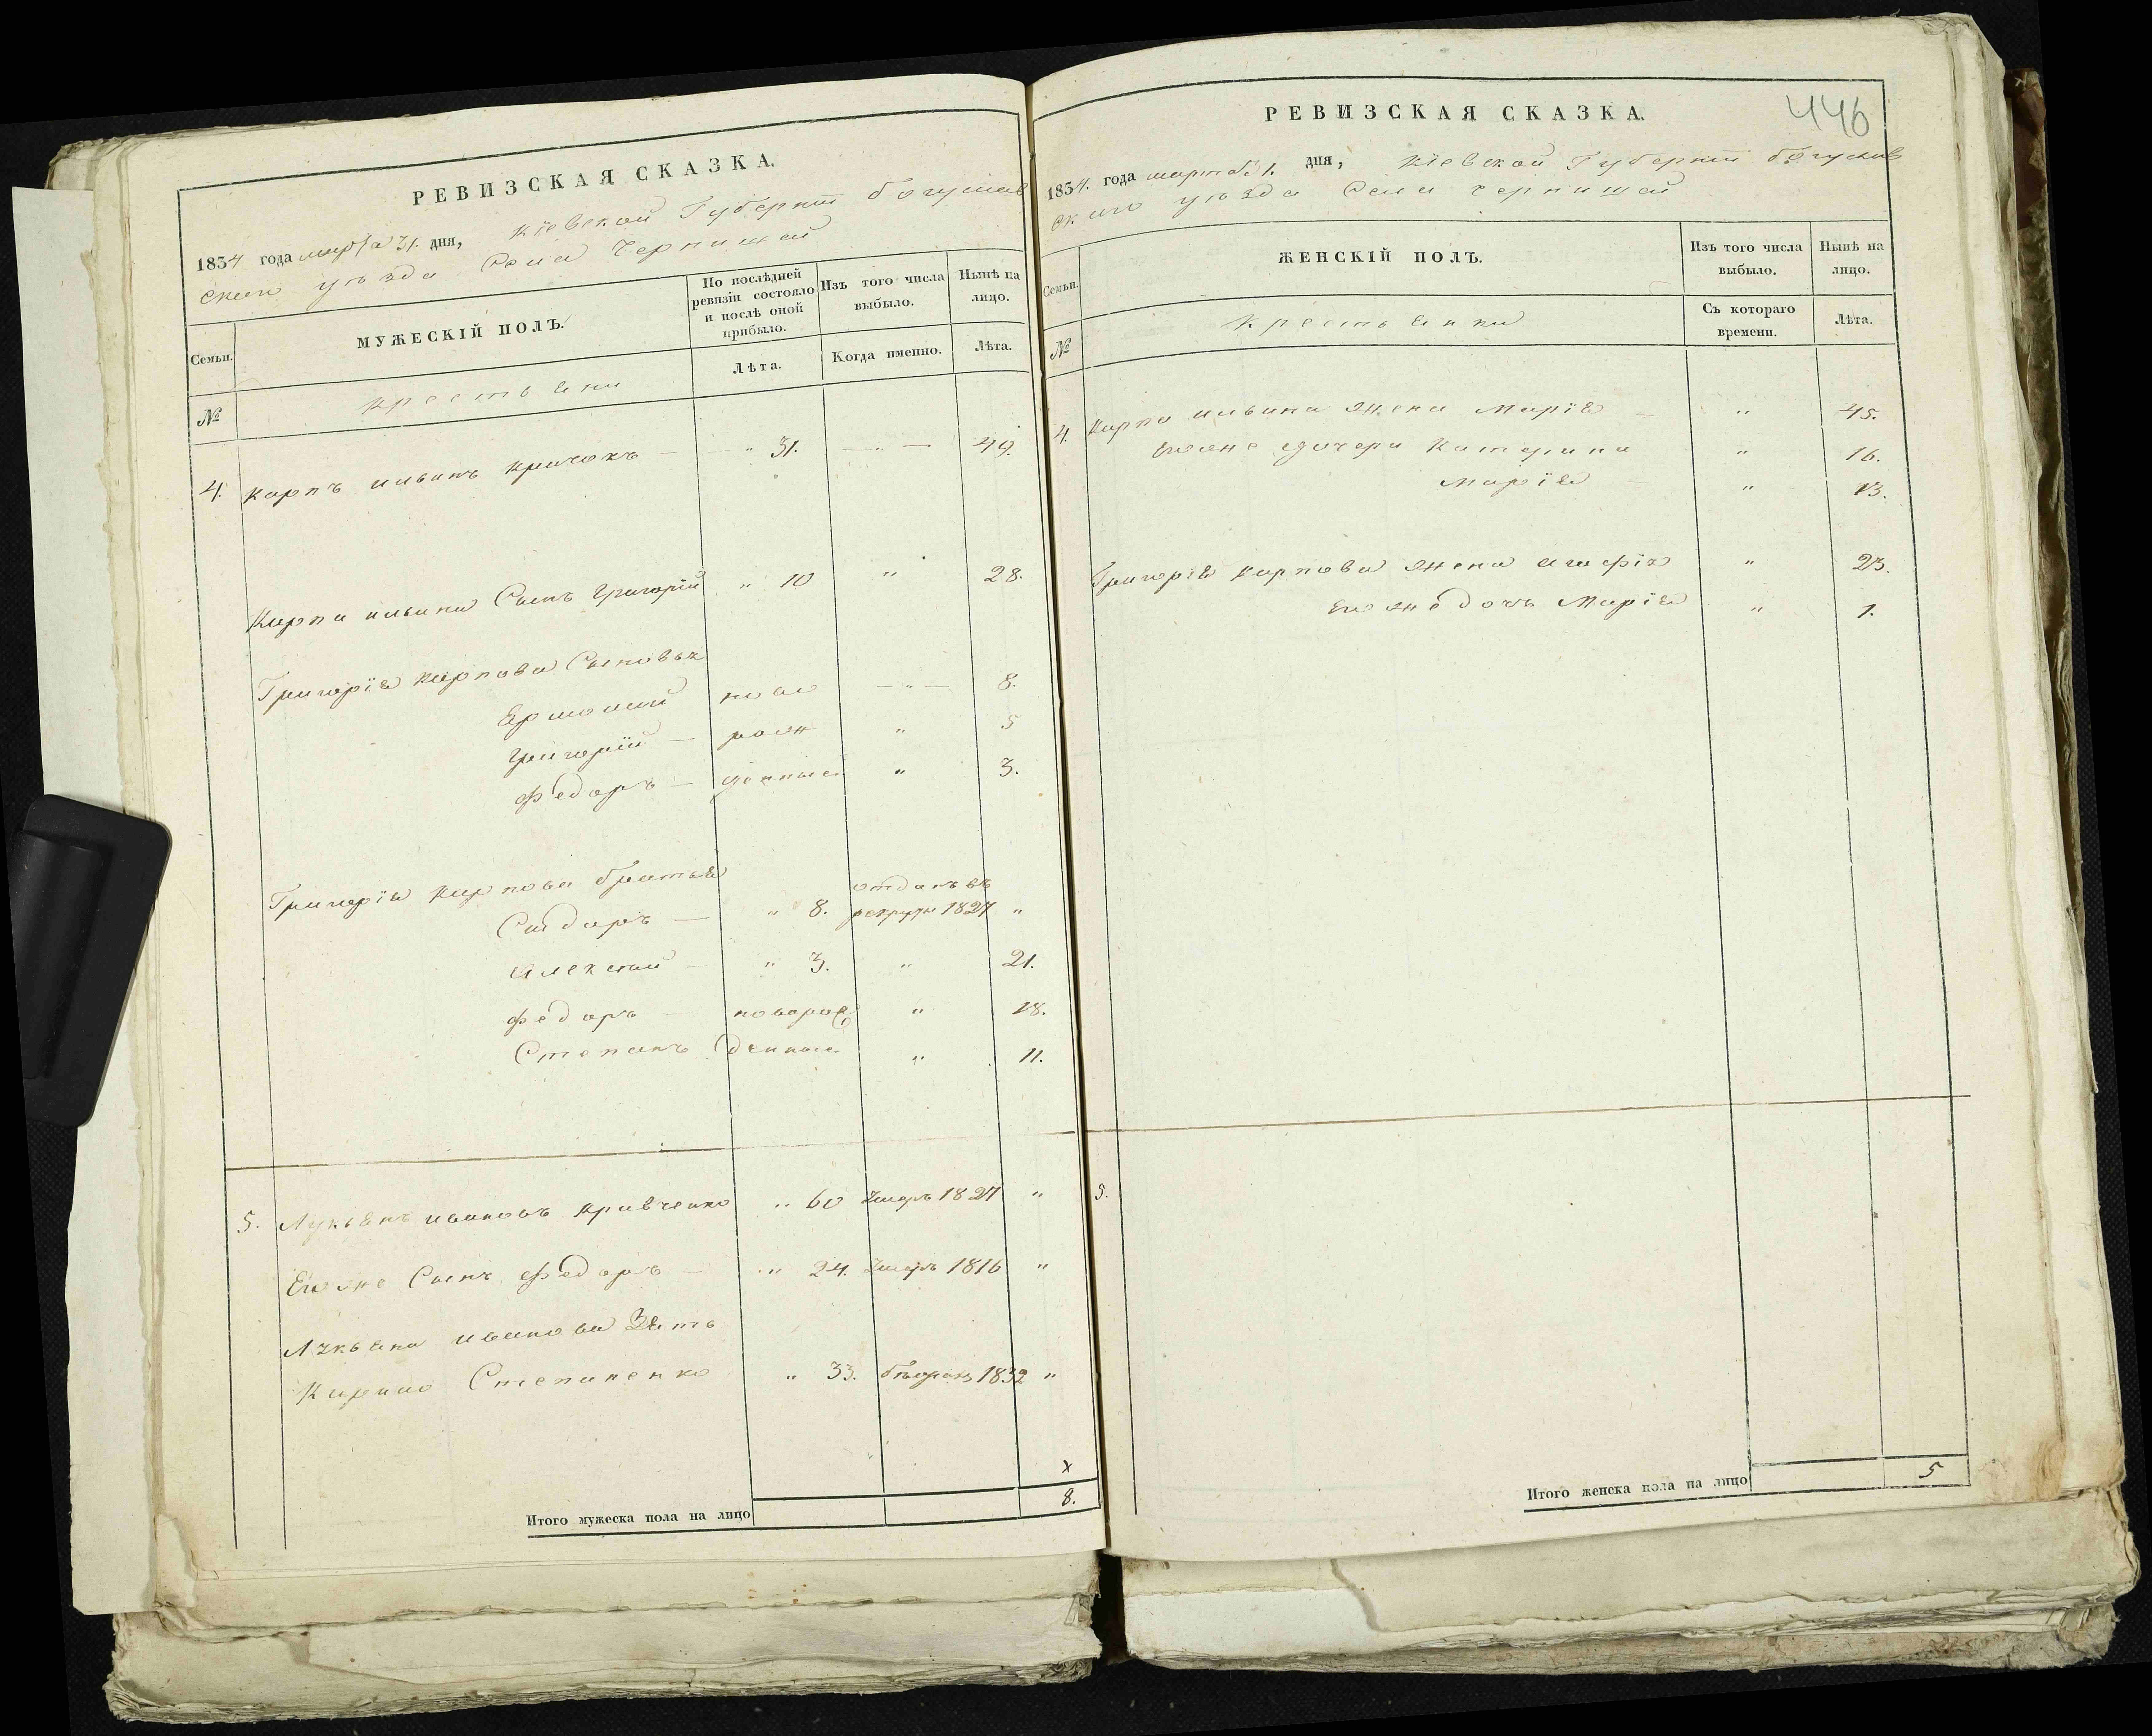 РЕВИЗСКАЯ СКАЗКА.
1834 года марта 31. дня, Кіевской Губерніи Богуслав
скаго уѣзда Села Чернишей
Семьи.
МУЖЕСКІЙ ПОЛЪ.
По послѣдней
ревизіи состояло
и послѣ оной
прибыло.
Изъ того числа
выбыло.
Нынѣ на
лицо.
№
крестьяни
Лѣта.
Когда именно.
Лѣта.
4. Карпъ ильинъ — " 31. — " — 49.
Карпа ильина Сынъ Григорій " 10 " 28.
Григорія Карпова Сыновья
Ермолай ново — " — 8.
Григорій — рож " 5
Федоръ — денные " 3.
Григорія Карпова братья
отданъ въ
Сидоръ — " 8. рекруты 1827 "
Алексѣй — " 3. " 21.
Федоръ — новорож " 18.
Степанъ денные " 11.
5. Лукьянъ ивановъ Кривченко " 60 Умеръ 1827 "
Его же Сынъ Федоръ — " 24. Умеръ 1816 "
Лукьяна иванова Зять
Кирило Степаненко " 33. 1832 "
х
Итого мужеска пола на лицо 8.
446
РЕВИЗСКАЯ СКАЗКА.
1834. года марта 31. дня, Кіевской Губерніи Богуслав
скаго уѣзда Села Чернишей
Семьи.
ЖЕНСКІЙ ПОЛЪ.
Изъ того числа
выбыло.
Нынѣ на
лицо.
№
крестьянки
Съ котораго
времени.
Лѣта.
4. Карпа ильина жена Марія — " 45.
Его же дочери Катерина " 16.
Марія — " 13.
Григорія Карпова жена Агафія " 23.
Его же дочь Марія " 1.
5.
Итого женска пола на лицо 5